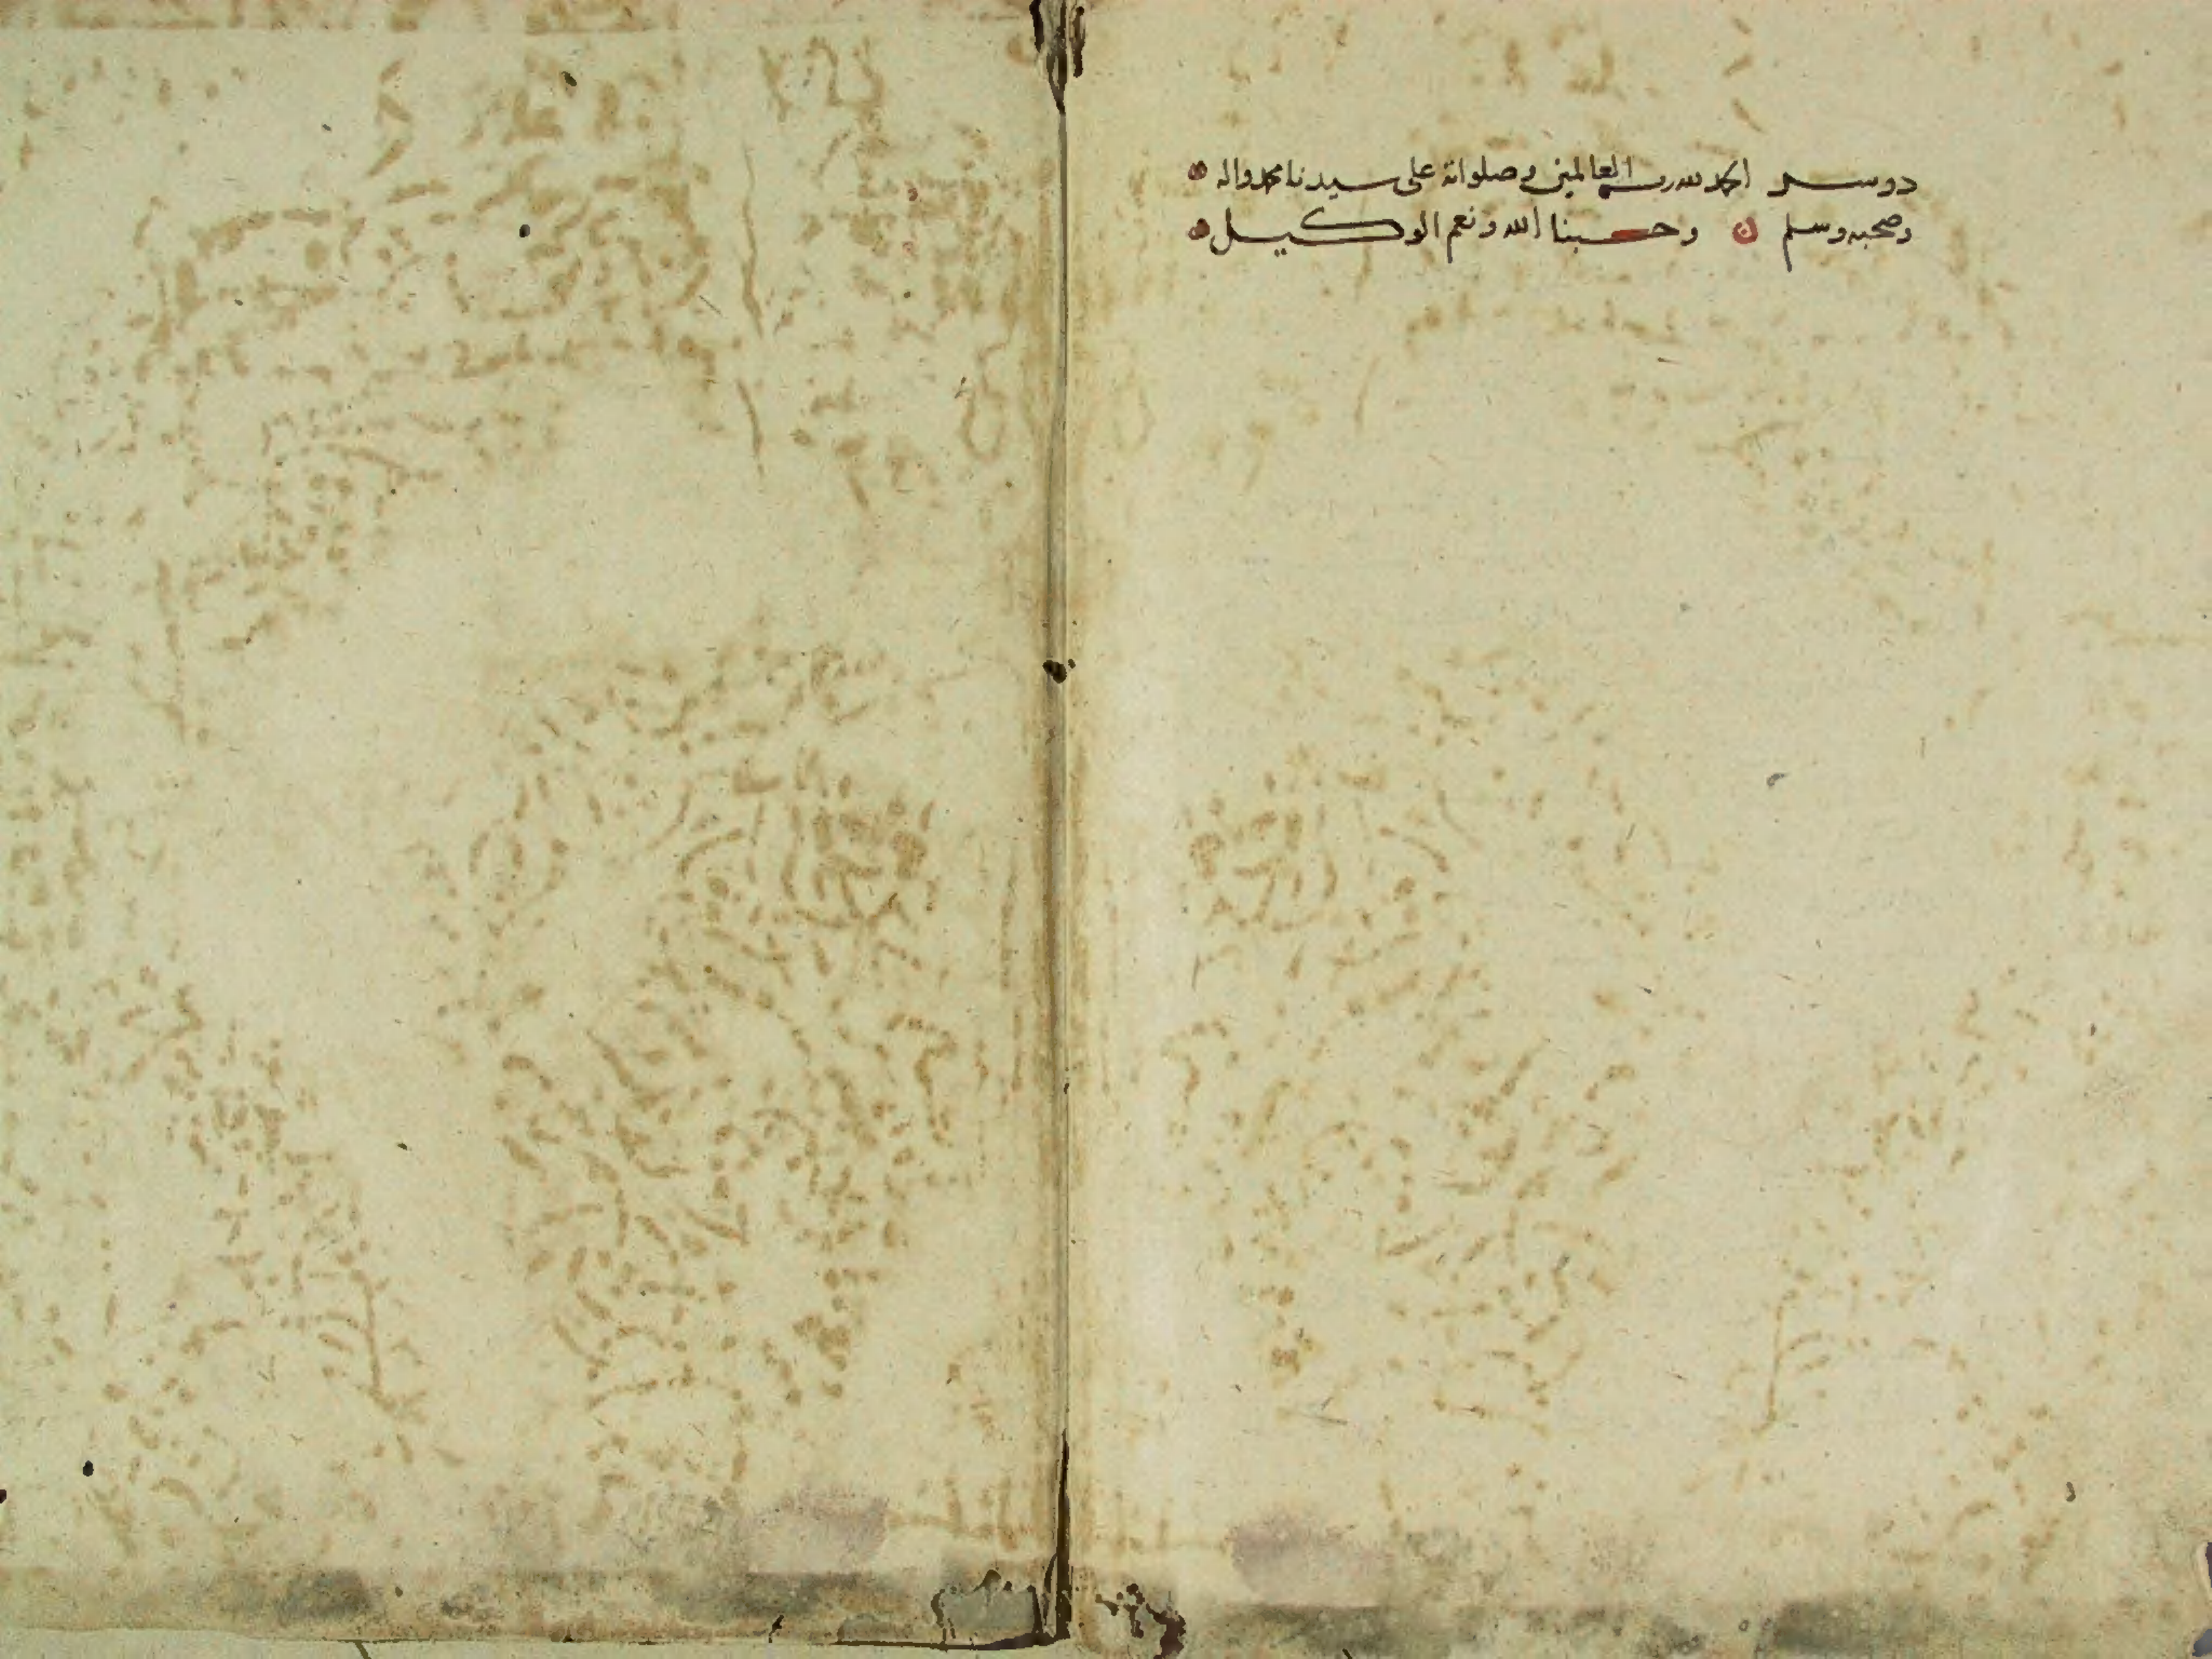 الحمد لله رب العالمين وصلواته على سيدنا محمد واله
وصحبه وسلم وحسبنا الله ونعم الوكيل